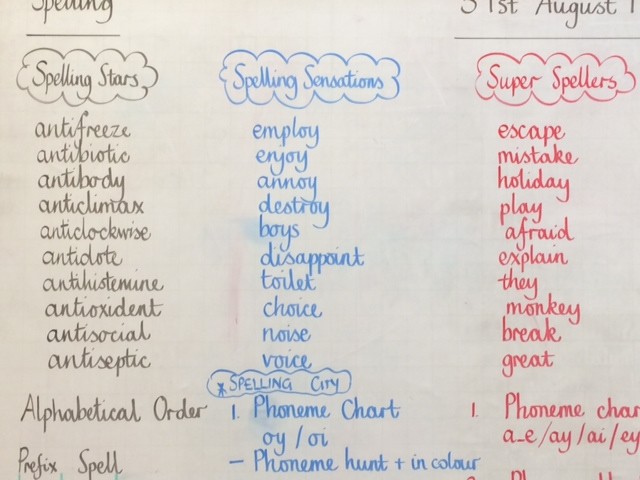 Spelling
31st August
Spelling Stars
antifreeze
antibiotic
antibody
anticlimax
anticlockwise
antidote
antihistemine
antioxident
antisocial
antiseptic
Alphabetical Order
Prefix Spell
Spelling Sensations
employ
enjoy
annoy
destroy
boys
disappoint
toilet
choice
noise
voice
* SPELLING CITY
1. Phoneme Chart
oy / oi
- Phoneme hunt + in colour
Super Spellers
escape
mistake
holiday
play
afraid
explain
they
monkey
break
great
1. Phoneme char
a_e/ay/ai/ey